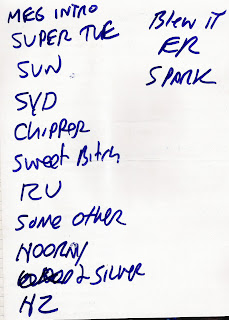 MEG INTRO
SUPER TUE
SUN
SYD
CHIPPER
Sweet Bitch
RU
Some Other
NOORMY
2 SILVER
HZ
Blew IT
ER
SPARK